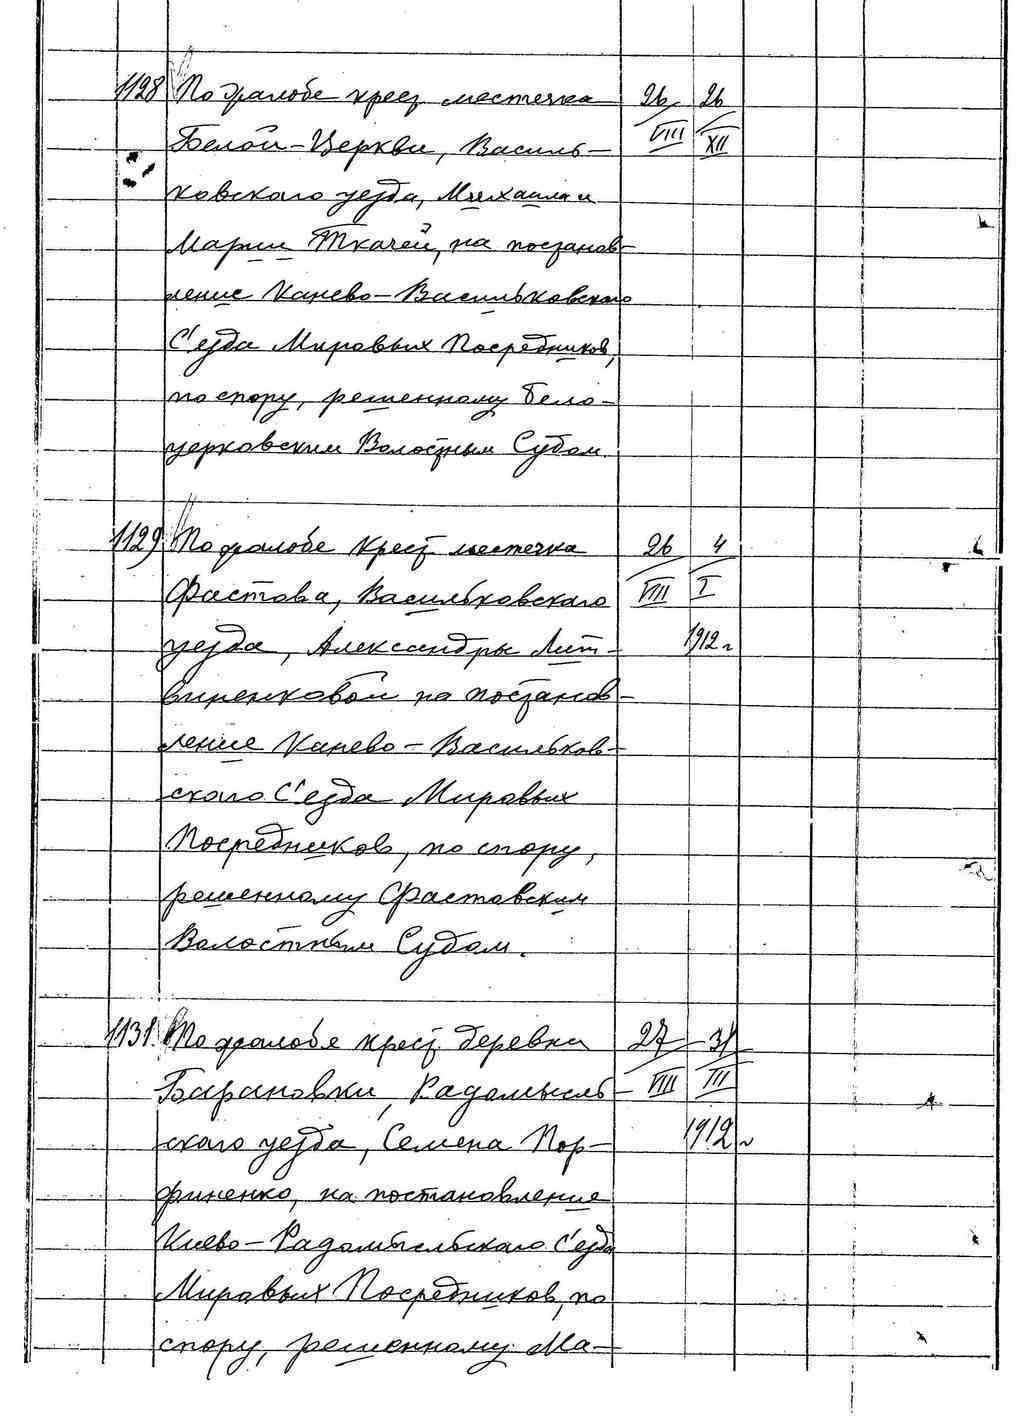 1128 По жалобе крест. местечка 26 26
Белой-Церкви, Василь- VIII XII
ковского уезда, Михаила и
Марии Ткачей, на постанов-
ление Канево-Васильковского
С'езда Мировых Посредников,
по спору, решенному Бело-
церковским Волостным Судом.
1129 По жалобе крест. местечка 26 4
Фастова, Васильковского VIII I
уезда, Александры Лит- 1912 г
виненковой на постанов-
ление Канево-Васильков-
ского С'езда Мировых
Посредников, по спору,
решенному Фастовским
Волостным Судом.
1131. По жалобе крест. деревни 27 31
Барановки, Радомысль- VIII III
ского уезда, Семена Пор- 1912 г
финенко, на постановление
Киево-Радомысльского С'езда
Мировых Посредников, по
спору, решенному Ма-